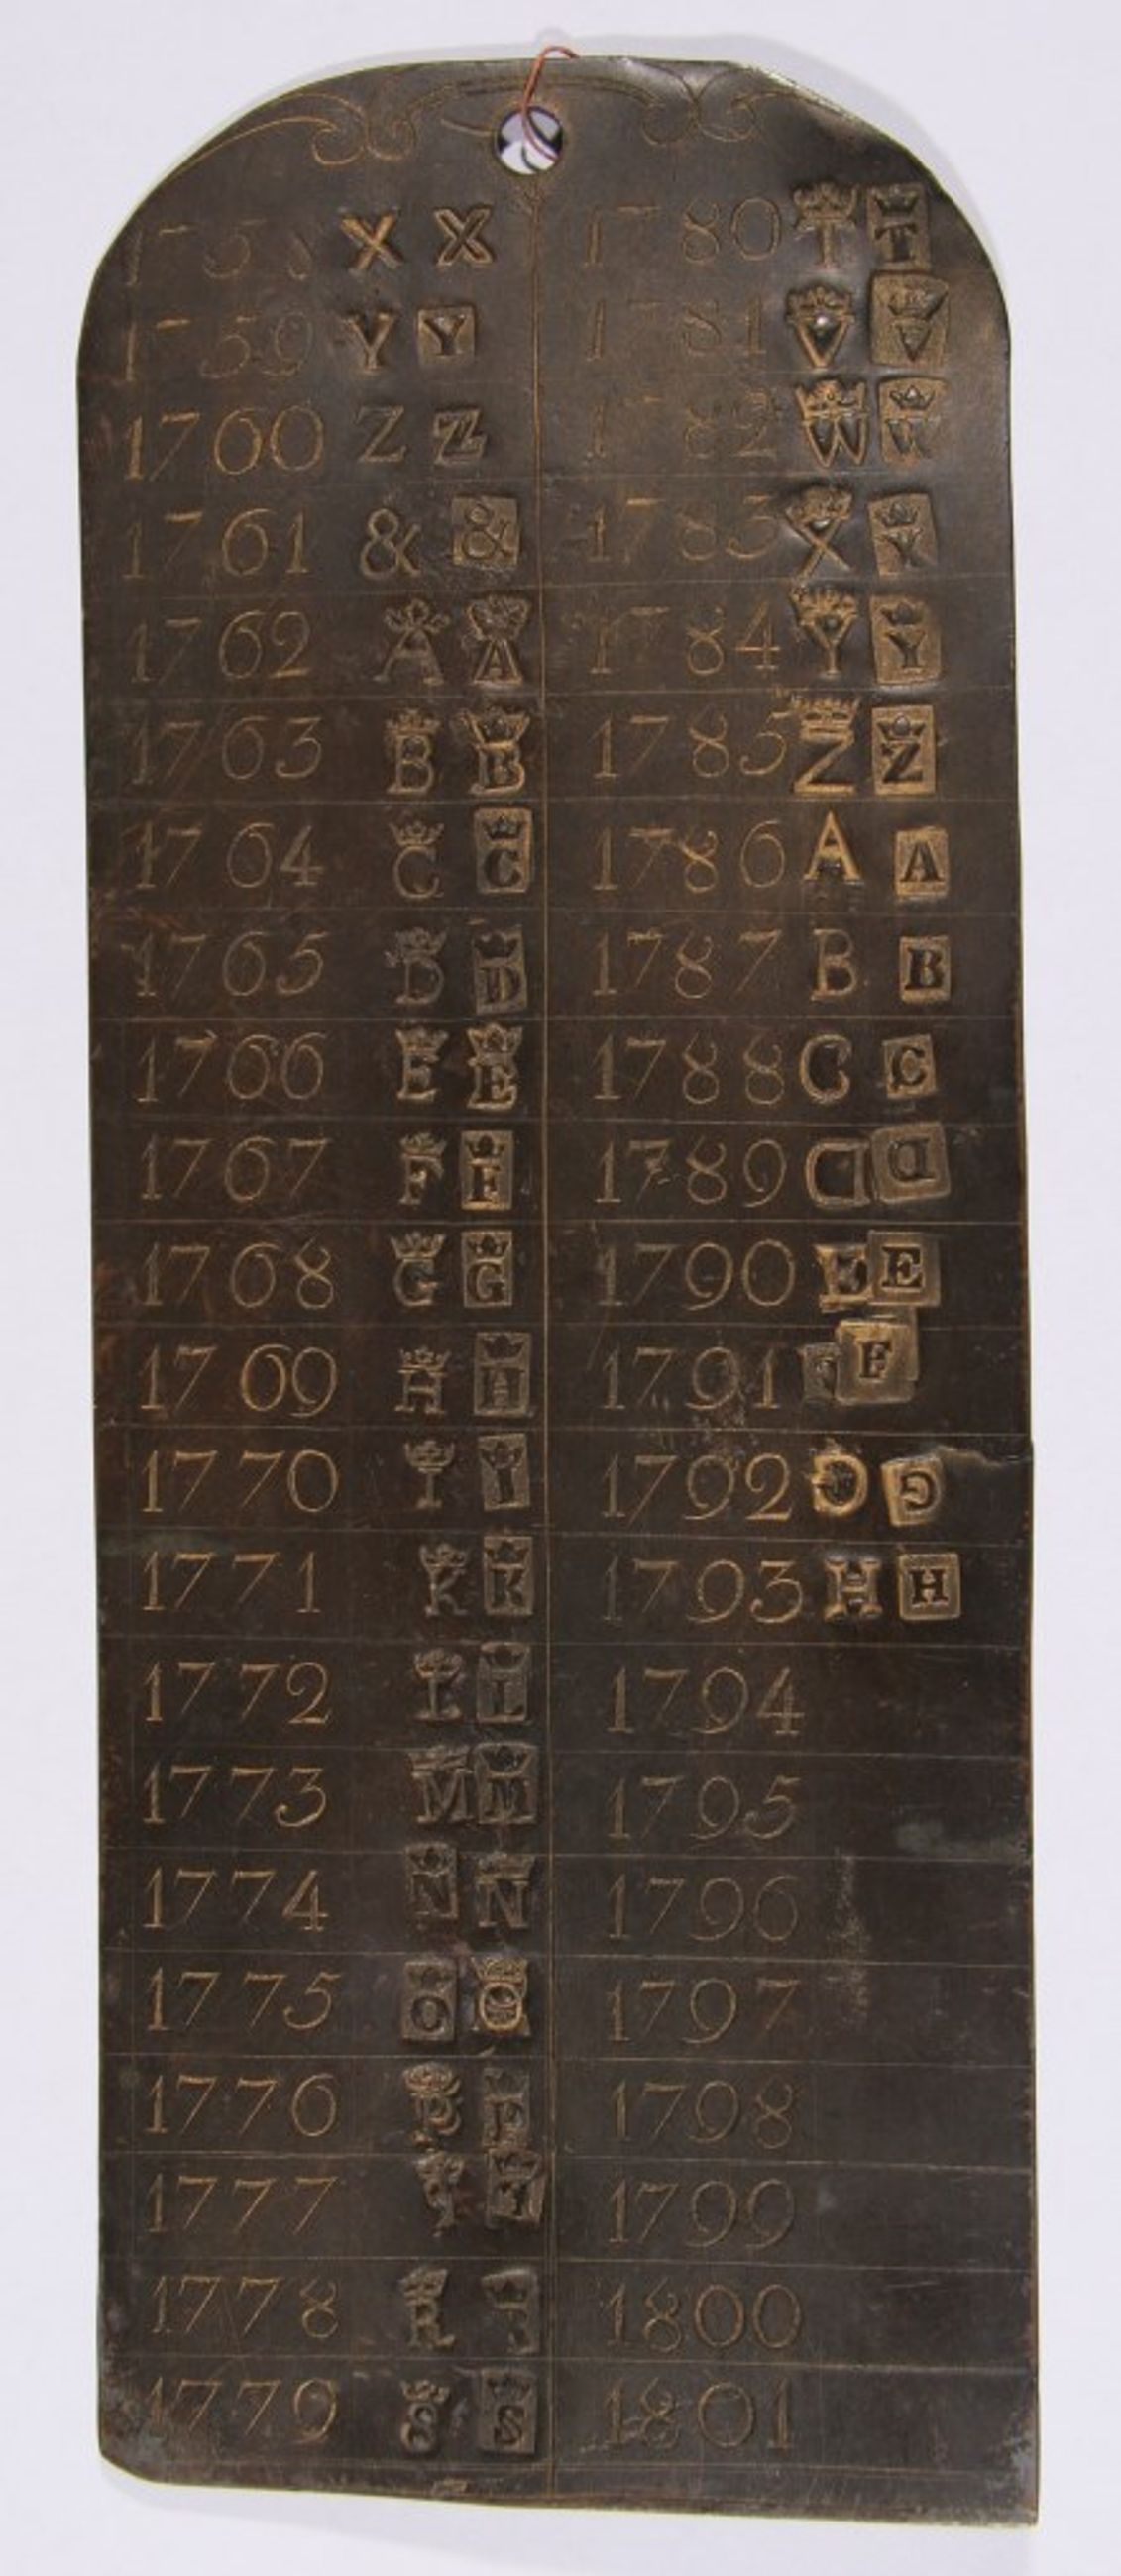 1758 X X
1759 Y Y
1760 Z Z
1761 & &
1762 A A
1763 B B
1764 C C
1765 D D
1766 E E
1767 F F
1768 G G
1769 H H
1770 I I
1771 K K
1772 L L
1773 M M
1774 N N
1775 O O
1776 P P
1777
1778 R
1779 S S
1780 T T
1781 V V
1782 W W
1783 X X
1784 Y Y
1785 Z Z
1786 A A
1787 B B
1788 C C
1789 D D
1790 E E
1791 F F
1792 G G
1793 H H
1794
1795
1796
1797
1798
1799
1800
1801